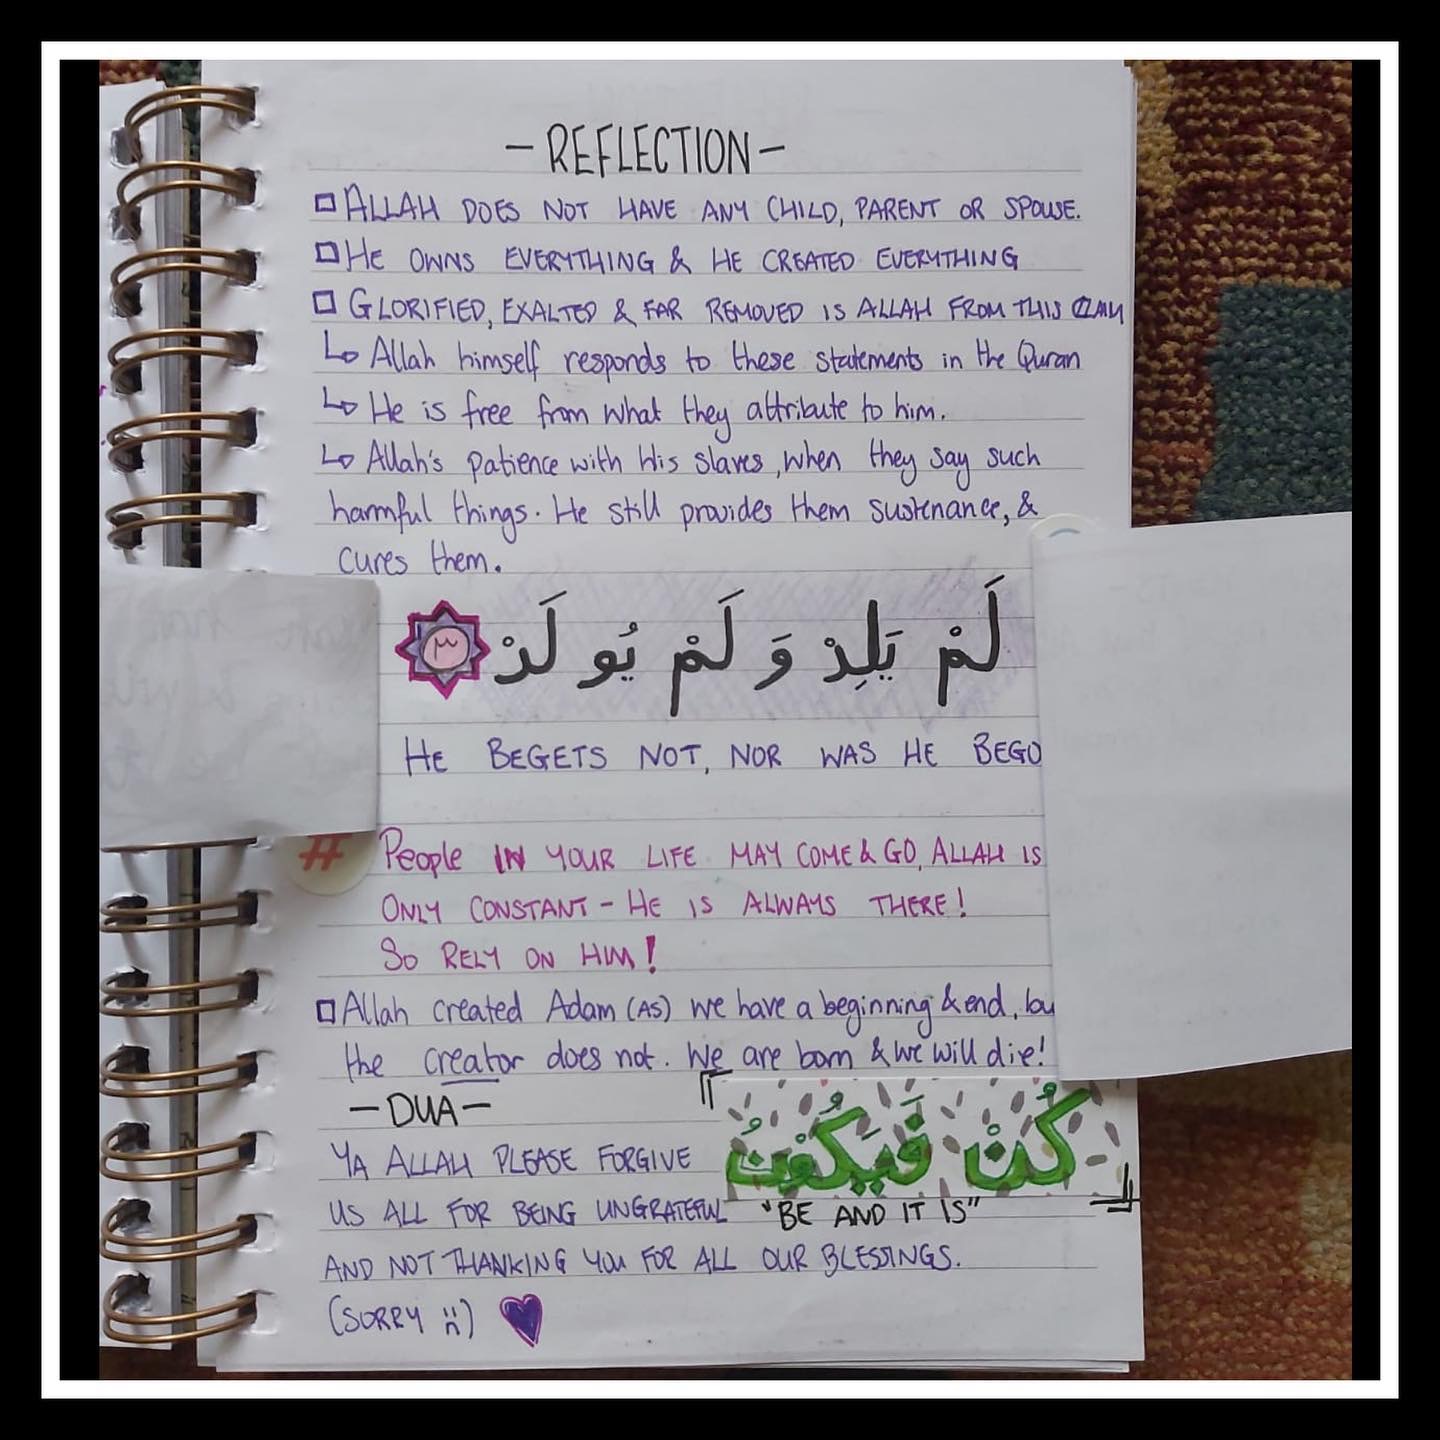 - REFLECTION -
ALLAH DOES NOT HAVE ANY CHILD, PARENT OR SPOUSE.
HE OWNS EVERYTHING & HE CREATED EVERYTHING
GLORIFIED, EXALTED & FAR REMOVED IS ALLAH FROM THIS CLAIM
↳ Allah himself responds to these statements in the Quran
↳ He is free from what they attribute to him.
↳ Allah's patience with His slaves, when they say such
harmful things. He still provides them sustenance, &
cures them.
لَمْ يَلِدْ وَلَمْ يُولَدْ ٣
HE BEGETS NOT, NOR WAS HE BEGO
# People IN YOUR LIFE MAY COME & GO, ALLAH IS
ONLY CONSTANT - HE IS ALWAYS THERE!
SO RELY ON HIM!
Allah created Adam (AS) we have a beginning & end, bu
the creator does not. We are born & we will die!
- DUA -
كُنْ فَيَكُونُ
YA ALLAH PLEASE FORGIVE
US ALL FOR BEING UNGRATEFUL "BE AND IT IS"
AND NOT THANKING YOU FOR ALL OUR BLESSINGS.
(SORRY :n)